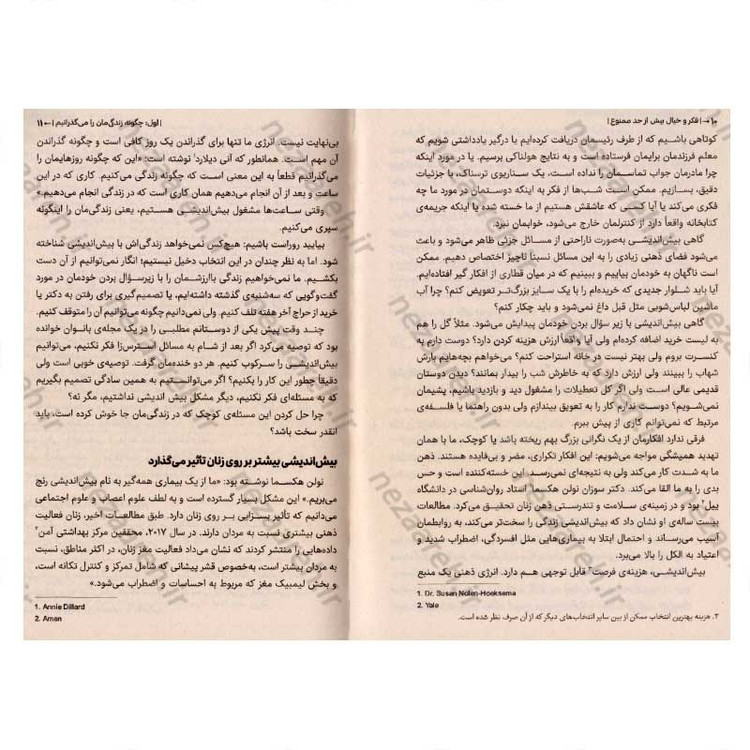 ۱۰ → | فکر و خیال بیش از حد ممنوع |
کوتاهی باشیم که از طرف رئیسمان دریافت کرده‌ایم یا درگیر یادداشتی شویم که
معلم فرزندمان برایمان فرستاده است و به نتایج هولناکی برسیم. یا در مورد اینکه
چرا مادرمان جواب تماسمان را نداده است، یک سناریوی ترسناک، با جزئیات
دقیق، بسازیم. ممکن است شب‌ها از فکر به اینکه دوستمان در مورد ما چه
فکری می‌کند یا آیا کسی که عاشقش هستیم از ما خسته شده یا اینکه جریمه‌ی
کتابخانه واقعاً دارد از کنترلمان خارج می‌شود، خوابمان نبرد.
گاهی بیش‌اندیشی به‌صورت ناراحتی از مسائل جزئی ظاهر می‌شود و باعث
می‌شود فضای ذهنی زیادی را به این مسائل نسبتاً ناچیز اختصاص دهیم. ممکن
است ناگهان به خودمان بیاییم و ببینیم که در میان قطاری از افکار گیر افتاده‌ایم.
آیا باید شلوار جدیدی که خریده‌ام را با یک سایز بزرگ‌تر تعویض کنم؟ چرا آب
ماشین لباس‌شویی مثل قبل داغ نمی‌شود و باید چکار کنم؟
گاهی بیش‌اندیشی با زیر سؤال بردن خودمان پیدایش می‌شود. مثلاً گل را هم
به لیست خرید اضافه کرده‌ام ولی آیا واقعاً ارزش هزینه کردن دارد؟ دوست دارم به
کنسرت بروم ولی بهتر نیست در خانه استراحت کنم؟ می‌خواهم بچه‌هایم بارش
شهاب را ببینند ولی ارزش دارد که به خاطرش شب را بیدار بمانند؟ دیدن دوستان
قدیمی عالی است ولی اگر کل تعطیلات را مشغول دید و بازدید باشیم، پشیمان
نمی‌شویم؟ دوست ندارم کار را به تعویق بیندازم ولی بدون راهنما یا فلسفه‌ی
مرتبط که نمی‌توانم کاری از پیش ببرم.
فرقی ندارد افکارمان از یک نگرانی بزرگ بهم ریخته باشد یا کوچک، ما با همان
تهدید همیشگی مواجه می‌شویم: این افکار تکراری، مضر و بی‌فایده هستند. ذهن
ما به شدت کار می‌کند ولی به نتیجه‌ای نمی‌رسد. این خسته‌کننده است و حس
بدی را به ما القا می‌کند. دکتر سوزان نولن هکسما¹ استاد روان‌شناسی در دانشگاه
ییل² بود و در زمینه‌ی سلامت و تندرستی ذهن زنان تحقیق می‌کرد. مطالعات
بیست ساله‌ی او نشان داد که بیش‌اندیشی زندگی را سخت‌تر می‌کند، به روابطمان
آسیب می‌رساند و احتمال ابتلا به بیماری‌هایی مثل افسردگی، اضطراب شدید و
اعتیاد به الکل را بالا می‌برد.
بیش‌اندیشی، هزینه‌ی فرصت³ قابل توجهی هم دارد. انرژی ذهنی یک منبع
1. Dr. Susan Nolen-Hoeksema
2. Yale
۳. هزینه بهترین انتخاب ممکن از بین سایر انتخاب‌های دیگر که از آن صرف نظر شده است.
| اول: چگونه زندگی‌مان را می‌گذرانیم | ← ۱۱
بی‌نهایت نیست. انرژی ما تنها برای گذراندن یک روز کافی است و چگونه گذراندن
آن مهم است. همانطور که آنی دیلارد¹ نوشته است: «این که چگونه روزهایمان را
می‌گذرانیم قطعاً به این معنی است که چگونه زندگی می‌کنیم. کاری که در این
ساعت و بعد از آن انجام می‌دهیم همان کاری است که در زندگی انجام می‌دهیم.»
وقتی ساعت‌ها مشغول بیش‌اندیشی هستیم، یعنی زندگی‌مان را اینگونه
سپری می‌کنیم.
بیایید روراست باشیم: هیچ‌کس نمی‌خواهد زندگی‌اش با بیش‌اندیشی شناخته
شود. اما به نظر چندان در این انتخاب دخیل نیستیم؛ انگار نمی‌توانیم از آن دست
بکشیم. ما نمی‌خواهیم زندگی باارزشمان را با زیرسؤال بردن خودمان در مورد
گفت‌وگویی که سه‌شنبه‌ی گذشته داشته‌ایم، یا تصمیم‌گیری برای رفتن به دکتر یا
خرید از حراج آخر هفته تلف کنیم. ولی نمی‌دانیم چگونه می‌توانیم آن را متوقف کنیم.
چند وقت پیش یکی از دوستانم مطلبی را در یک مجله‌ی بانوان خوانده
بود که توصیه می‌کرد اگر بعد از شام به مسائل استرس‌زا فکر نکنیم، می‌توانیم
بیش‌اندیشی را سرکوب کنیم. هر دو خنده‌مان گرفت. توصیه‌ی خوبی است ولی
دقیقاً چطور این کار را بکنیم؟ اگر می‌توانستیم به همین سادگی تصمیم بگیریم
که به مسئله‌ای فکر نکنیم، دیگر مشکل بیش اندیشی نداشتیم، مگر نه؟
چرا حل کردن این مسئله‌ی کوچک که در زندگی‌مان جا خوش کرده است، باید
انقدر سخت باشد؟
بیش‌اندیشی بیشتر بر روی زنان تأثیر می‌گذارد
نولن هکسما نوشته بود: «ما از یک بیماری همه‌گیر به نام بیش‌اندیشی رنج
می‌بریم.» این مشکل بسیار گسترده است و به لطف علوم اعصاب و علوم اجتماعی
می‌دانیم که تأثیر بسزایی بر روی زنان دارد. طبق مطالعات اخیر، زنان فعالیت
ذهنی بیشتری نسبت به مردان دارند. در سال ۲۰۱۷، محققین مرکز بهداشتی آمن²
داده‌هایی را منتشر کردند که نشان می‌داد فعالیت مغز زنان، در اکثر مناطق، نسبت
به مردان بیشتر است، به‌خصوص قشر پیشانی که شامل تمرکز و کنترل تکانه است،
و بخش لیمبیک مغز که مربوط به احساسات و اضطراب می‌شود.»
1. Annie Dillard
2. Amen
nezafeh.ir